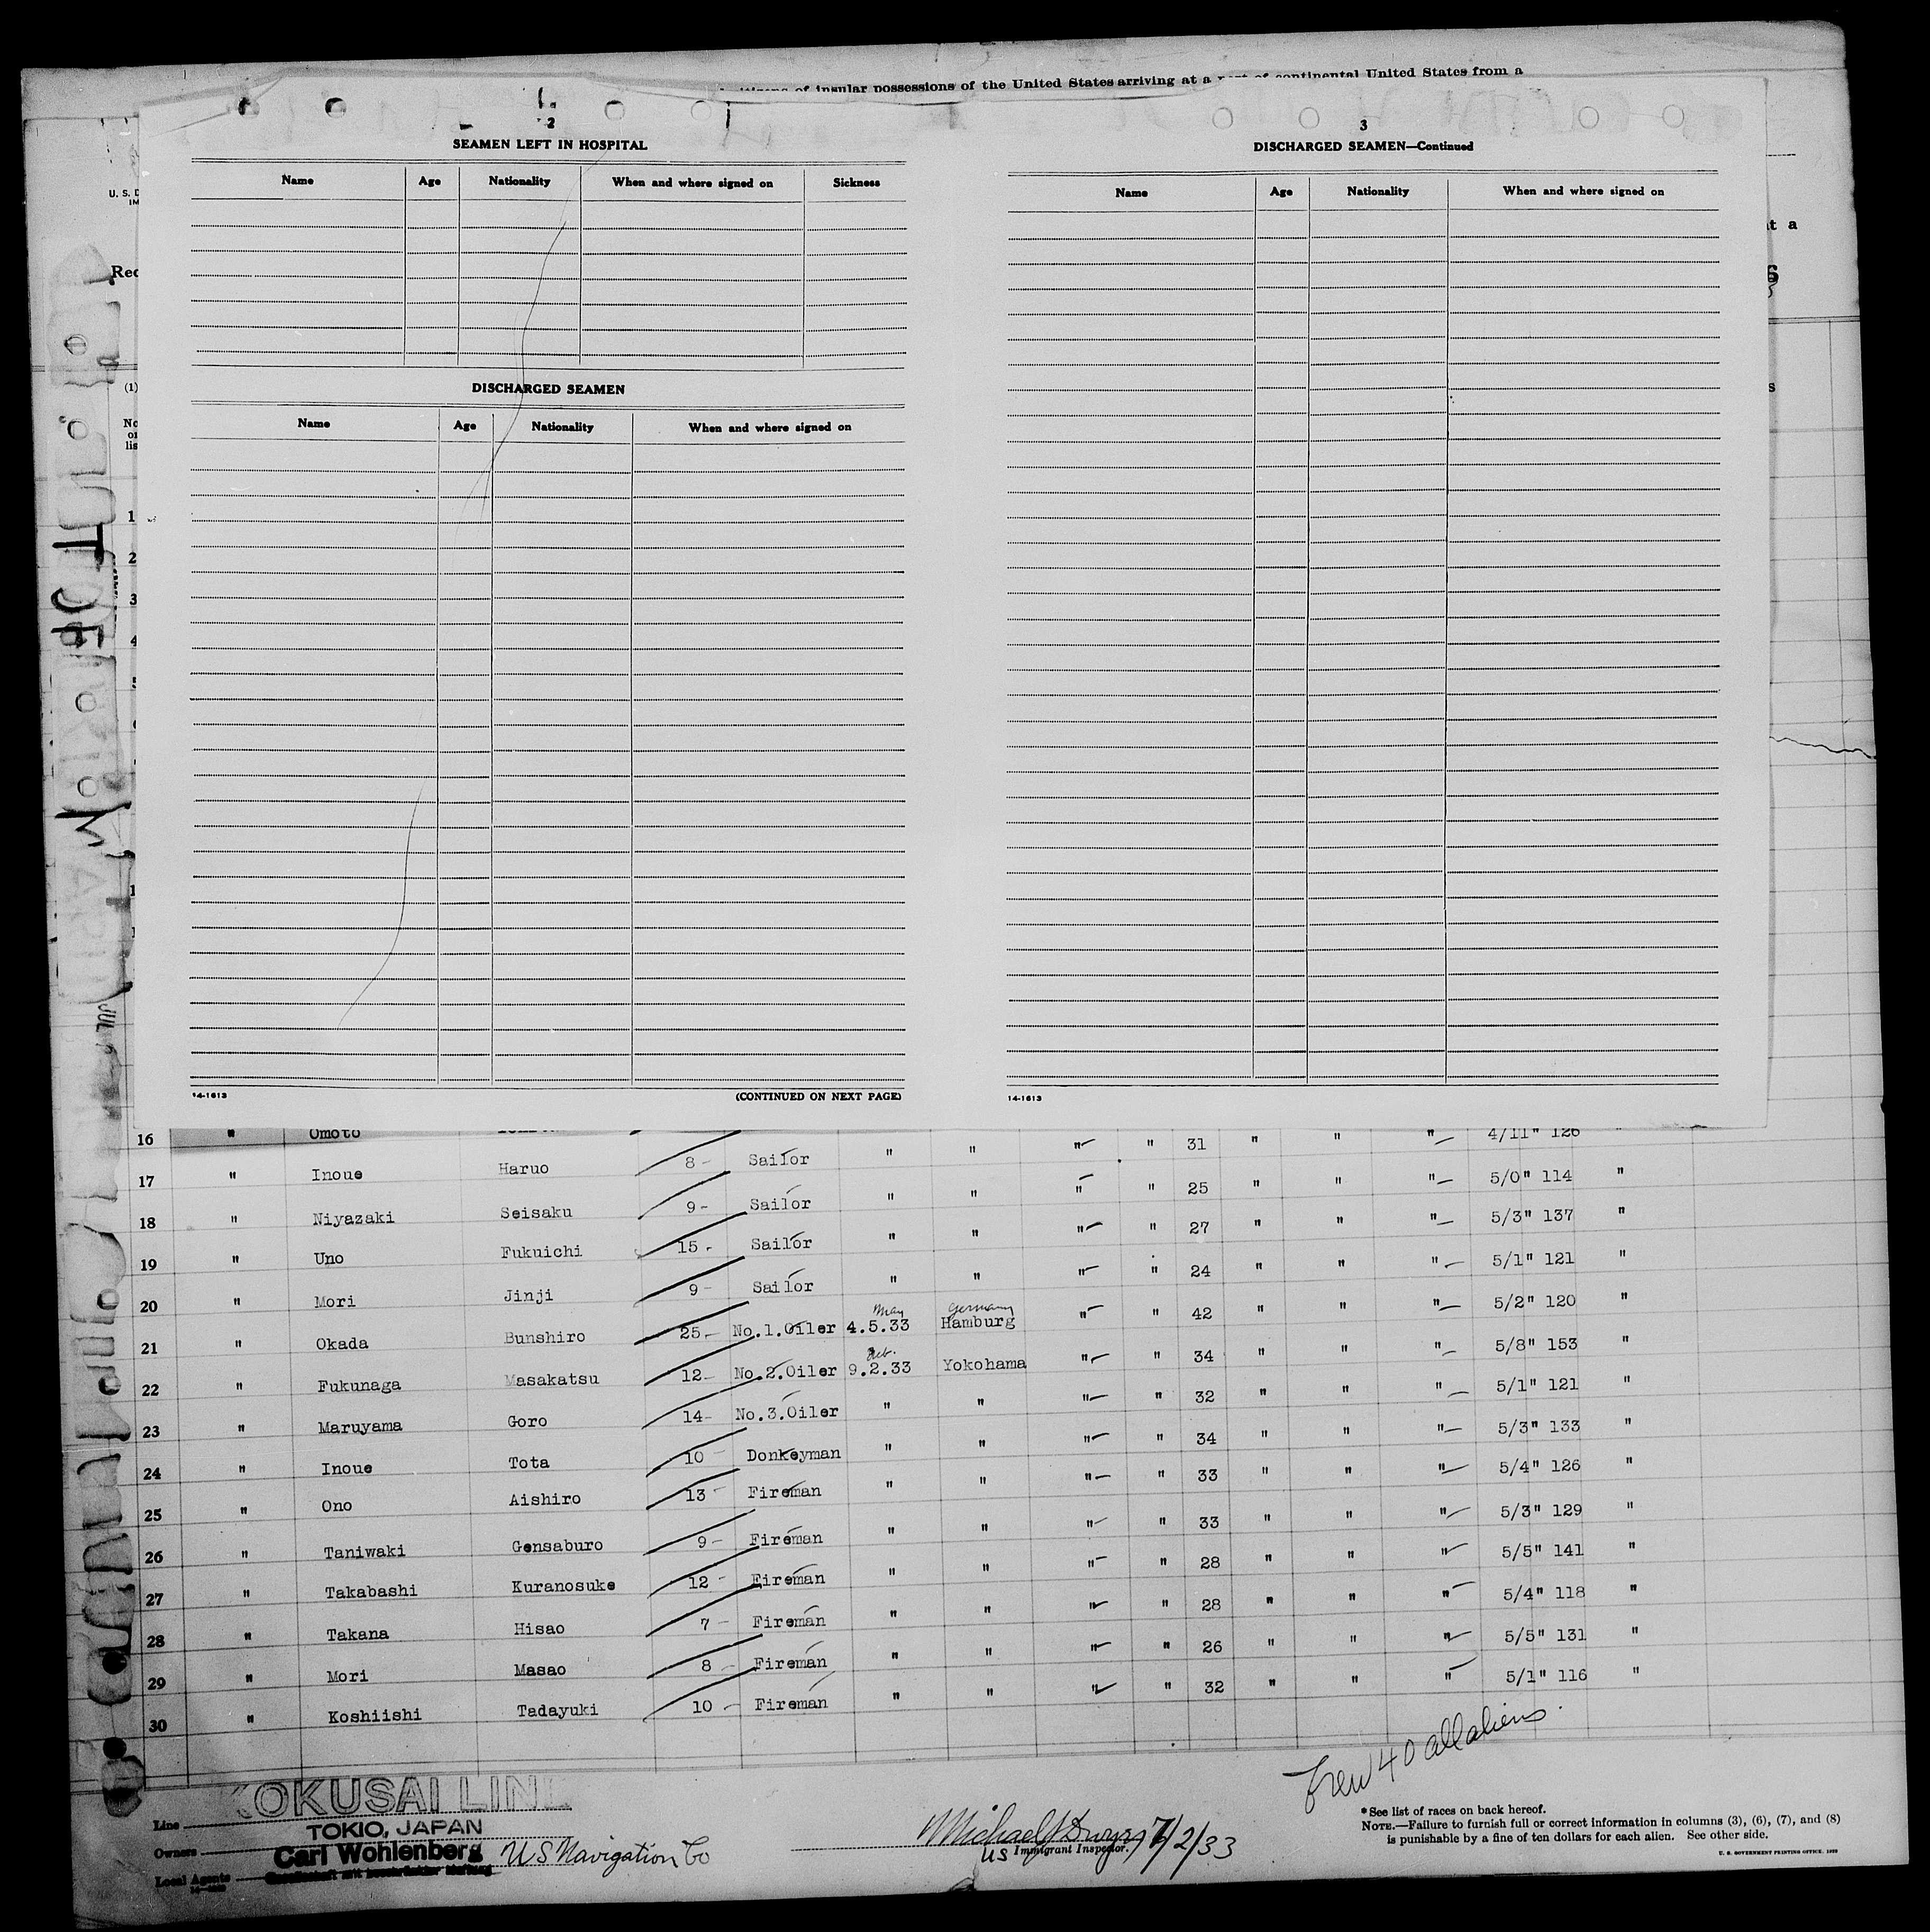 itizens of insular possessions of the United States arriving at a port of continental United States from a
2
SEAMEN LEFT IN HOSPITAL
Name Age Nationality When and where signed on Sickness
DISCHARGED SEAMEN
Name Age Nationality When and where signed on
14-1613 (CONTINUED ON NEXT PAGE)
3
DISCHARGED SEAMEN—Continued
Name Age Nationality When and where signed on
14-1613
U. S. D
IM
Rec
(1)
No
or
lis
1
2
3
4
5
t a
6
s
JUL
16 " Omoto 4/11" 126 "
17 " Inoue Haruo 8- Sailor " " " " 31 " " " 5/0" 114 "
18 " Niyazaki Seisaku 9- Sailor " " " " 25 " " " 5/3" 137 "
19 " Uno Fukuichi 15- Sailor " " " " 27 " " " 5/1" 121 "
20 " Mori Jinji 9- Sailor " " " " 24 " " " 5/2" 120 "
May Germany
21 " Okada Bunshiro 25- No.1.Oiler 4.5.33 Hamburg " " 42 " " " 5/8" 153 "
Feb.
22 " Fukunaga Masakatsu 12- No.2.Oiler 9.2.33 Yokohama " " 34 " " " 5/1" 121 "
23 " Maruyama Goro 14- No.3.Oiler " " " " 32 " " " 5/3" 133 "
24 " Inoue Tota 10- Donkeyman " " " " 34 " " " 5/4" 126 "
25 " Ono Aishiro 13- Fireman " " " " 33 " " " 5/3" 129 "
26 " Taniwaki Gensaburo 9- Fireman " " " " 33 " " " 5/5" 141 "
27 " Takabashi Kuranosuke 12- Fireman " " " " 28 " " " 5/4" 118 "
28 " Takana Hisao 7- Fireman " " " " 28 " " " 5/5" 131 "
29 " Mori Masao 8- Fireman " " " " 26 " " " 5/1" 116 "
30 " Koshiishi Tadayuki 10- Fireman " " " " 32 " " "
Crew 40 all aliens.
KOKUSAI LINE
Line
TOKIO, JAPAN
Owners
Carl Wohlenberg US Navigation Co
Gesellschaft mit beschränkter Haftung
Local Agents
7/2/33
US Immigrant Inspector.
*See list of races on back hereof.
NOTE.—Failure to furnish full or correct information in columns (3), (6), (7), and (8)
is punishable by a fine of ten dollars for each alien. See other side.
U. S. GOVERNMENT PRINTING OFFICE. 1932